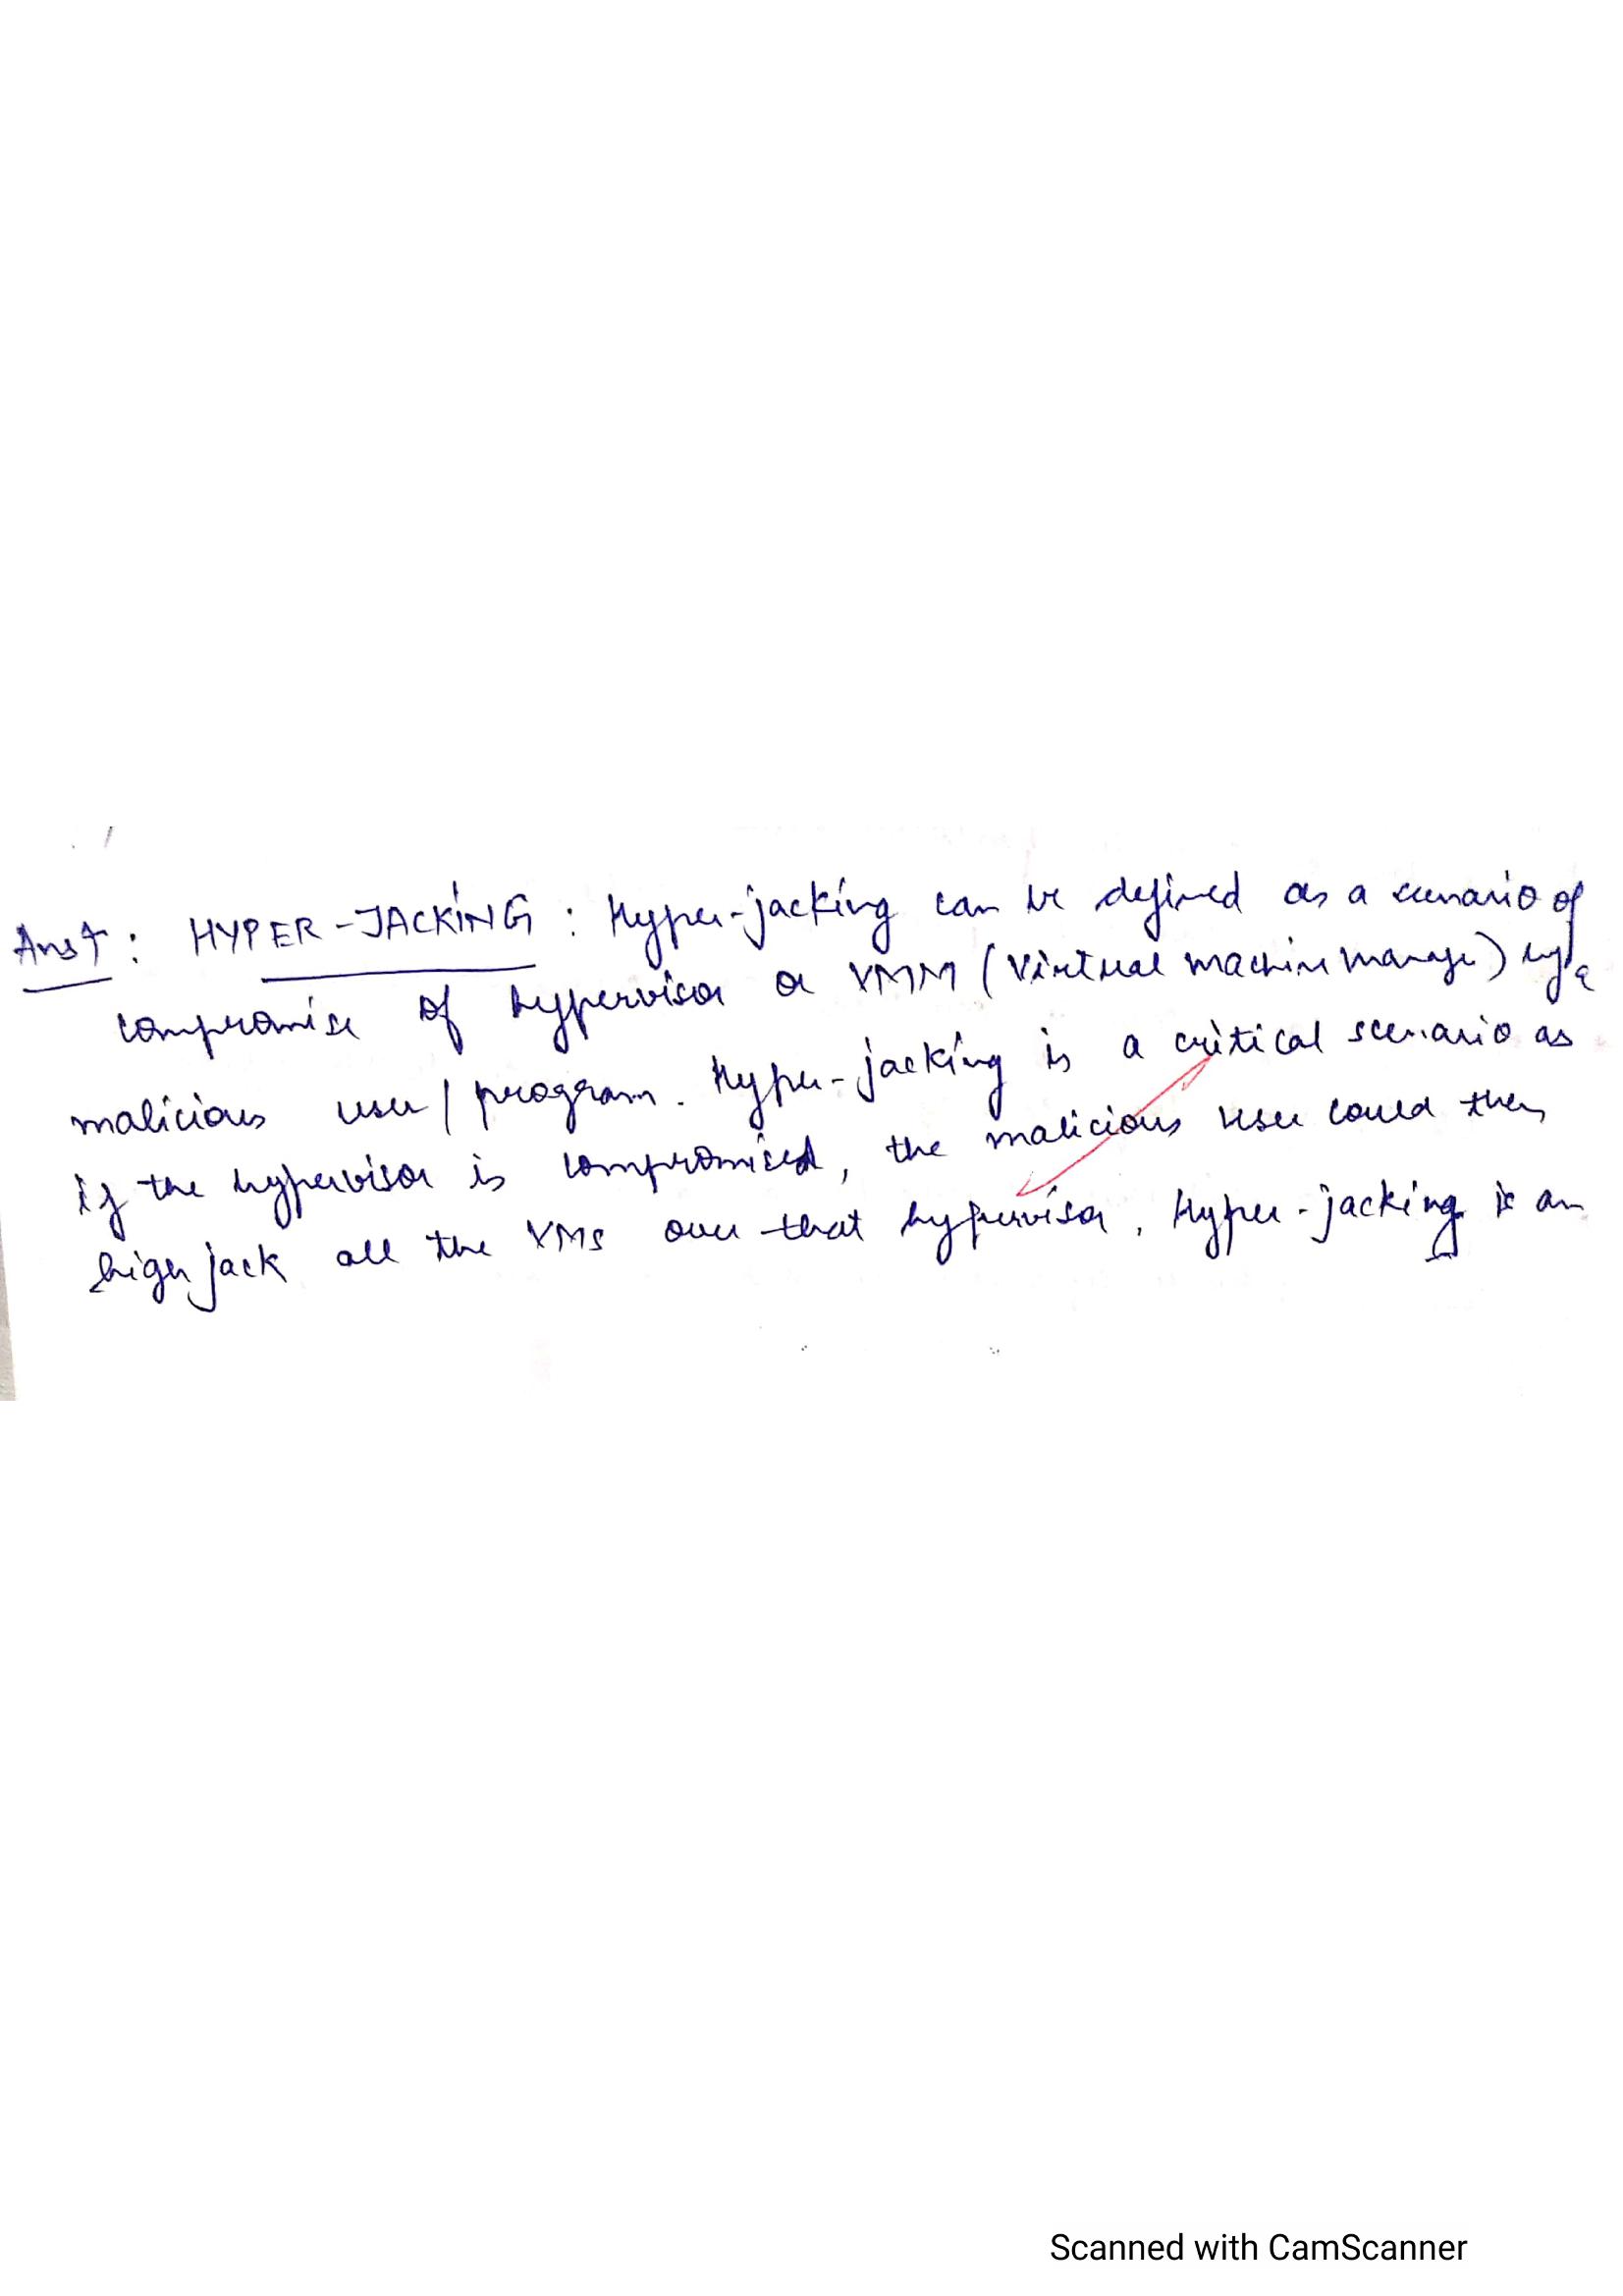 Ans 7: HYPER-JACKING : Hyper-jacking can be defined as a scenario of
compromise of hypervisor or VMM (Virtual machine manager) by a
malicious user/program. Hyper-jacking is a critical scenario as
if the hypervisor is compromised, the malicious user could then
higher jack all the VMs over that hypervisor. Hyper-jacking is an
Scanned with CamScanner